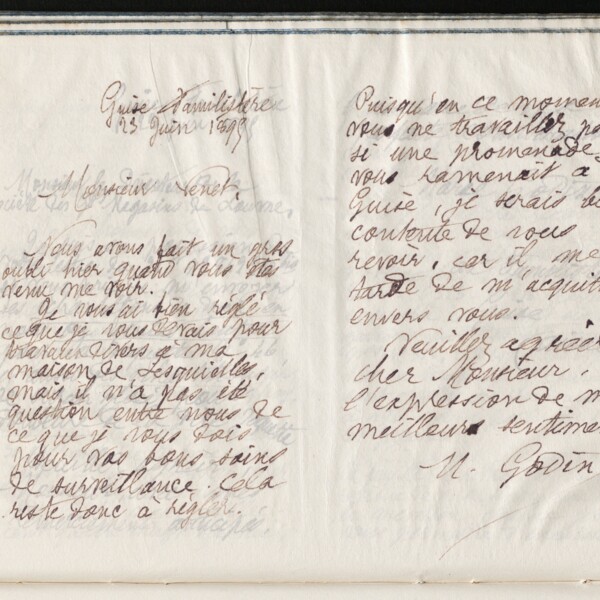 Guise Familistère
23 Juin 1895
Monsieur Venet,
Nous avons fait un gros
oubli hier quand vous êtes
venu me voir.
Je vous ai bien réglé
ce que je vous devais pour
travaux divers à ma
maison de Lesquielles,
mais il n'a pas été
question entre nous de
ce que je vous dois
pour vos bons soins
de surveillance. Cela
reste donc à régler.
Puisqu'en ce momen
vous ne travaillez pa
si une promenade
vous ramenait à
Guise, je serais b
contente de vous
revoir, car il me
tarde de m'acquit
envers vous.
Veuillez agréer
cher Monsieur,
l'expression de m
meilleurs sentime
M. Godin